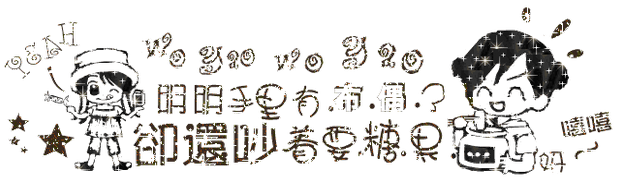 YEAH
Wo Yao Wo Yao
明明手里有.布.偶.?
卻還吵着要.糖.果.
嘻嘻
好~